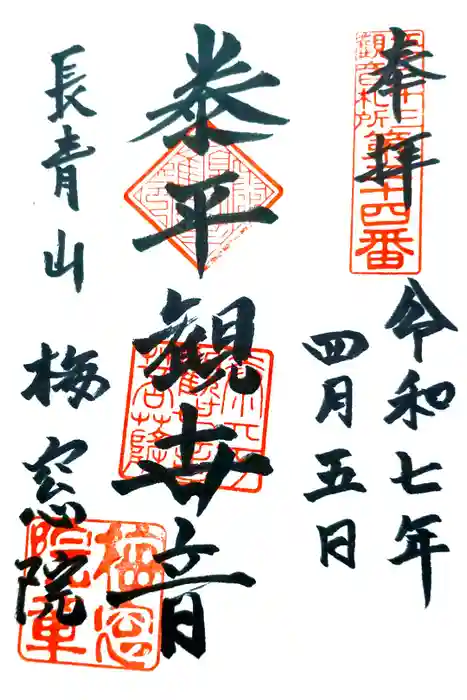 奉拝
江戸三十三観音札所第二十四番
令和七年
四月五日
泰平
観世音
長青山
梅窓院
梅窓院章